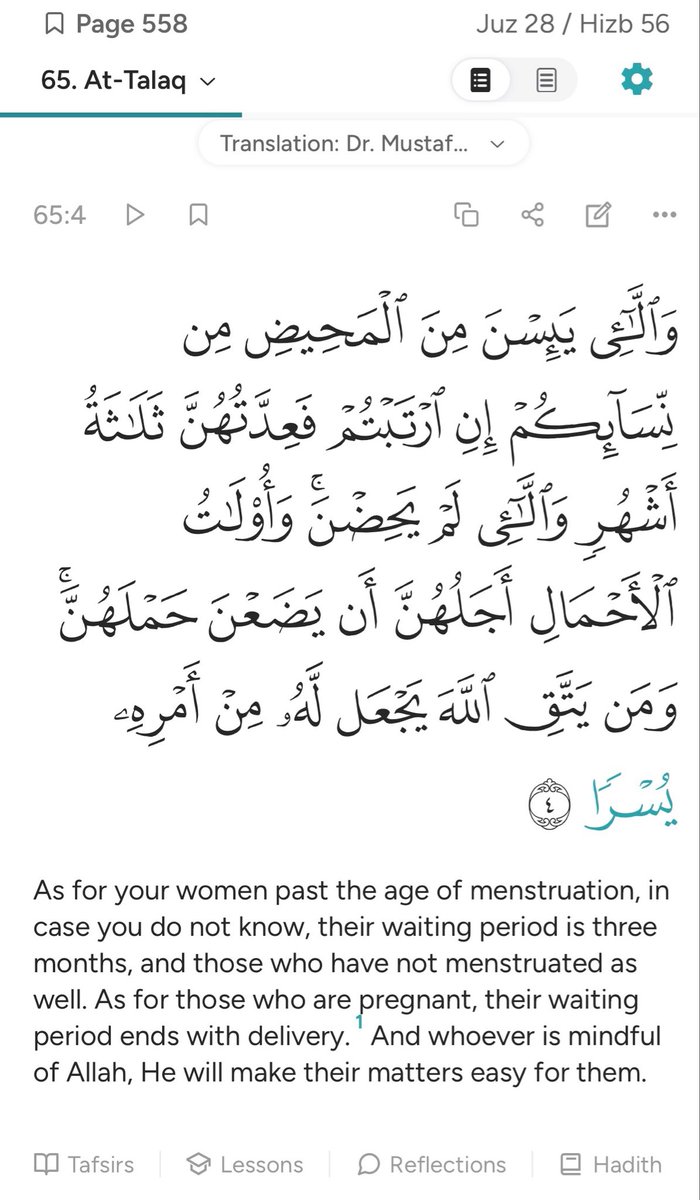 Page 558 Juz 28 / Hizb 56
65. At-Talaq
Translation: Dr. Mustaf...
65:4
وَٱلَّـٰٓـِٔى يَئِسْنَ مِنَ ٱلْمَحِيضِ مِن
نِّسَآئِكُمْ إِنِ ٱرْتَبْتُمْ فَعِدَّتُهُنَّ ثَلَـٰثَةُ
أَشْهُرٍ وَٱلَّـٰٓـِٔى لَمْ يَحِضْنَ ۚ وَأُو۟لَـٰتُ
ٱلْأَحْمَالِ أَجَلُهُنَّ أَن يَضَعْنَ حَمْلَهُنَّ ۚ
وَمَن يَتَّقِ ٱللَّهَ يَجْعَل لَّهُۥ مِنْ أَمْرِهِۦ
يُسْرًا ٤
As for your women past the age of menstruation, in
case you do not know, their waiting period is three
months, and those who have not menstruated as
well. As for those who are pregnant, their waiting
period ends with delivery. 1 And whoever is mindful
of Allah, He will make their matters easy for them.
Tafsirs Lessons Reflections Hadith